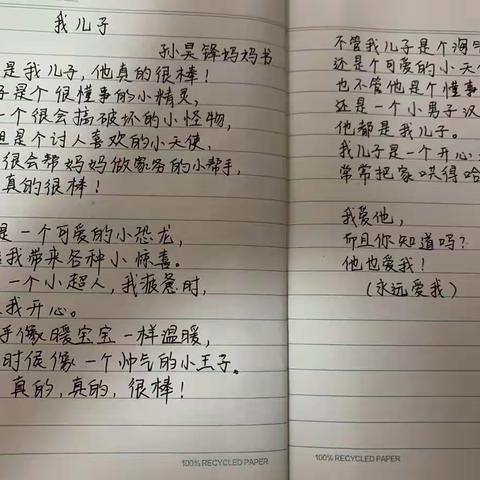 我儿子
孙昊铎妈妈书
是我儿子,他真的很棒!
子是个很懂事的小精灵,
一个很会搞破坏的小怪物,
但是个讨人喜欢的小天使,
很会帮妈妈做家务的小帮手,
真的很棒!
是一个可爱的小恐龙,
我带来各种小惊喜。
一个小超人,我疲惫时,
我开心。
手像暖宝宝一样温暖,
时侯像一个帅气的小王子。
真的,真的,很棒!
100% RECYCLED PAPER
不管我儿子是个淘气
还是个可爱的小天
也不管他是个懂事
还是一个小男子汉
他都是我儿子。
我儿子是一个开心
常常把家哄得哈
我爱他,
而且你知道吗?
他也爱我!
(永远爱我)
100% RECYCLED PAPER